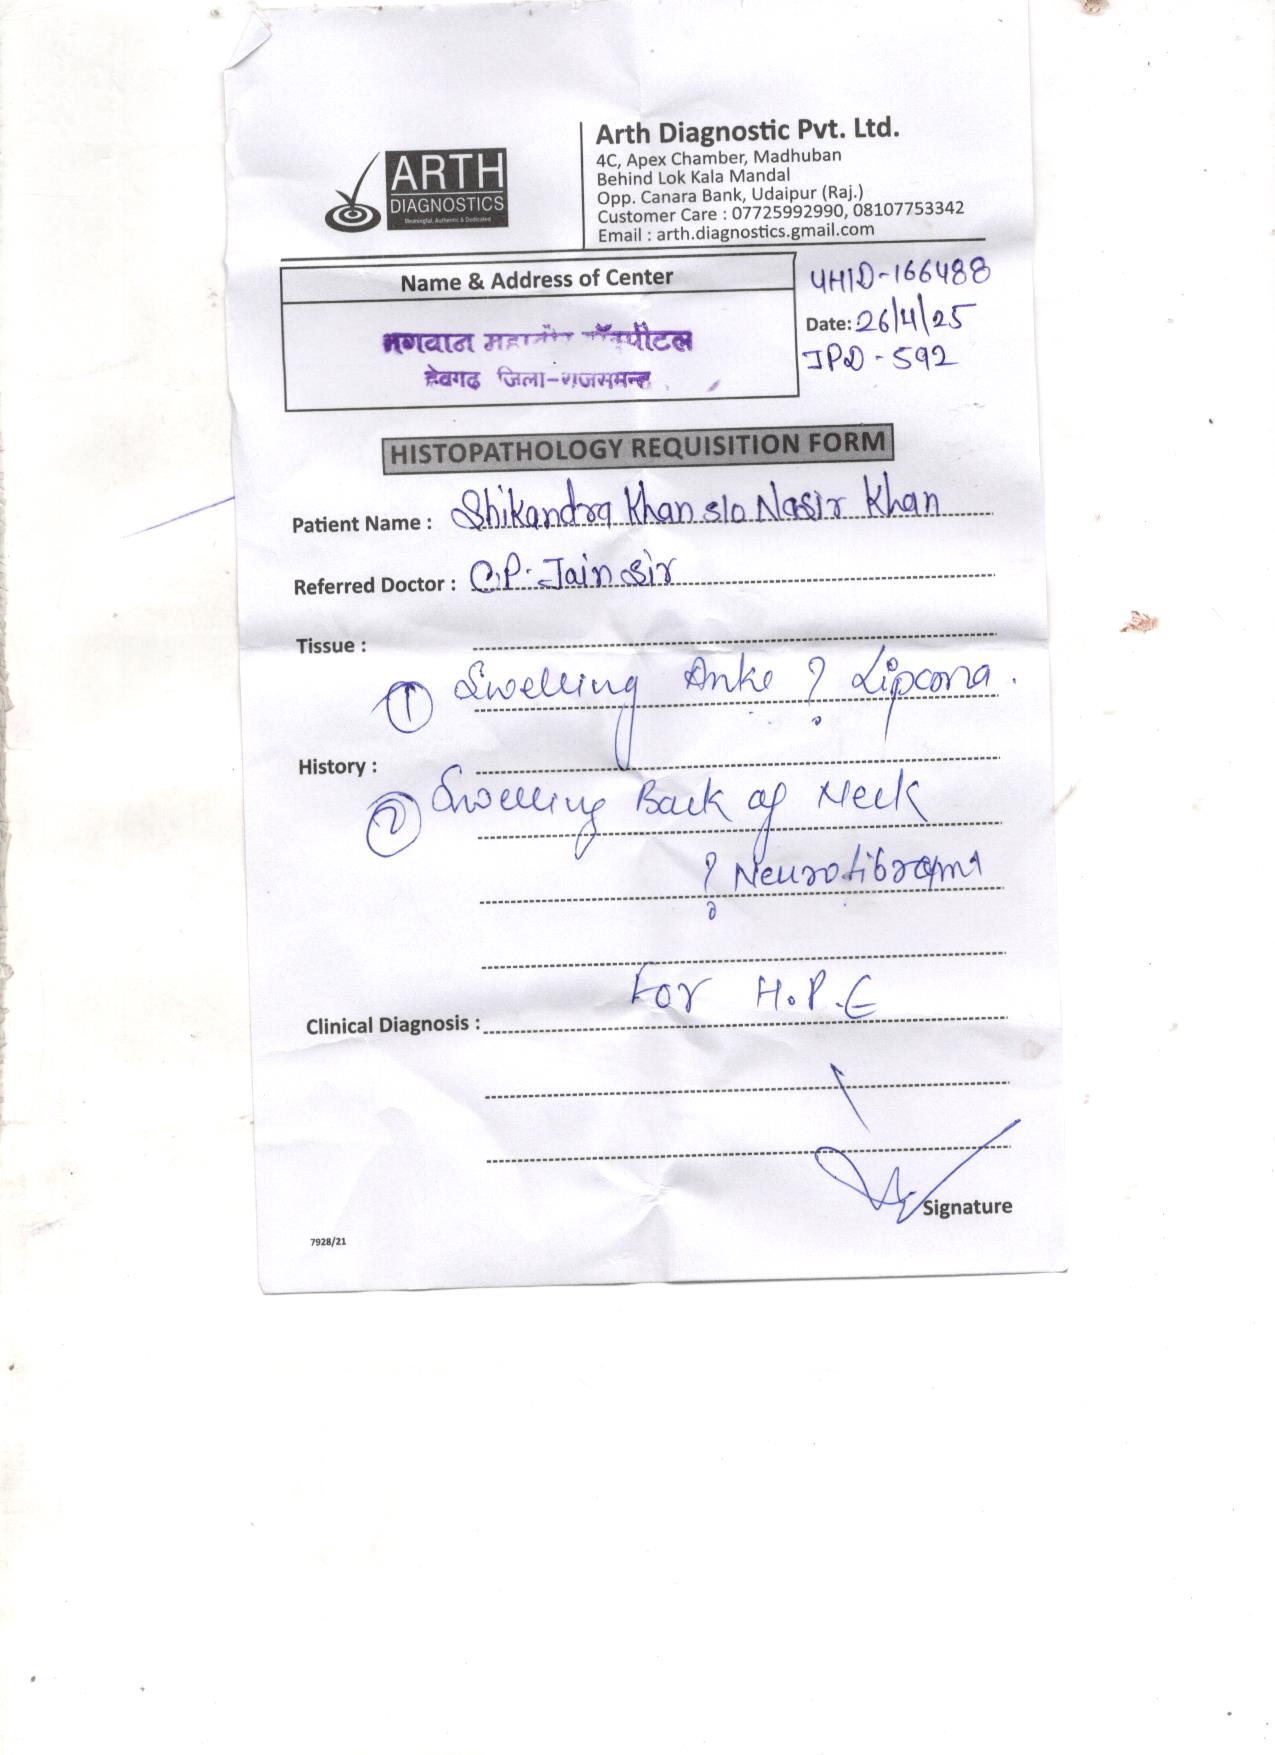 ARTH
DIAGNOSTICS
Meaningful, Authentic & Dedicated
Arth Diagnostic Pvt. Ltd.
4C, Apex Chamber, Madhuban
Behind Lok Kala Mandal
Opp. Canara Bank, Udaipur (Raj.)
Customer Care : 07725992990, 08107753342
Email : arth.diagnostics.gmail.com
Name & Address of Center
भगवान महावीर हॉस्पीटल
देवगढ़ जिला-राजसमन्द
UHID-166488
Date: 26/4/25
IPD - 592
HISTOPATHOLOGY REQUISITION FORM
Patient Name : Shikandra Khan s/o Nasir Khan
Referred Doctor : C.P. Jain sir
Tissue :
① Swelling Anke ? Lipoma.
History :
② Swelling Back of Neck
? Neurofibroma
For H.P.E
Clinical Diagnosis :
Signature
7928/21